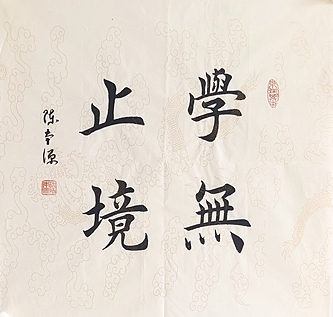 學無
止境
陈幸源